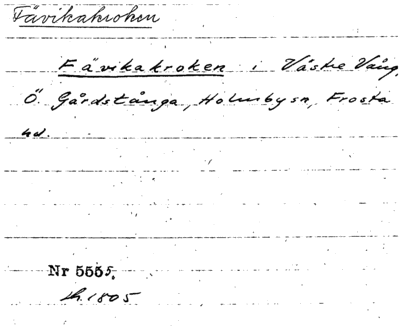 Fävikakroken
Fävikakroken i Västre Vång,
Ö. Gårdstånga, Holmbysn, Frosta
hd.
Nr 5555.
1805